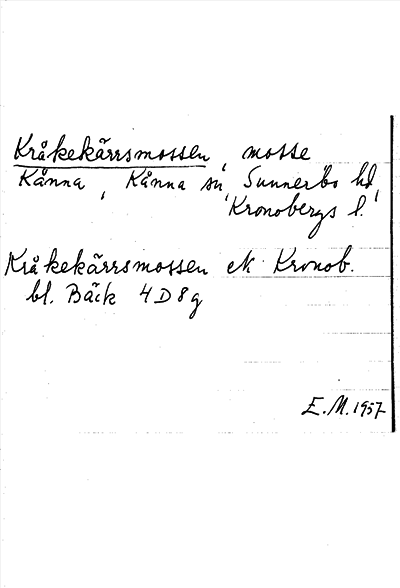 Kråkekärrsmossen, mosse
Kånna, Kånna sn, Sunnerbo hd,
Kronobergs l.
Kråkekärrsmossen ek Kronob.
bl. Bäck 4D8g
E.M. 1957